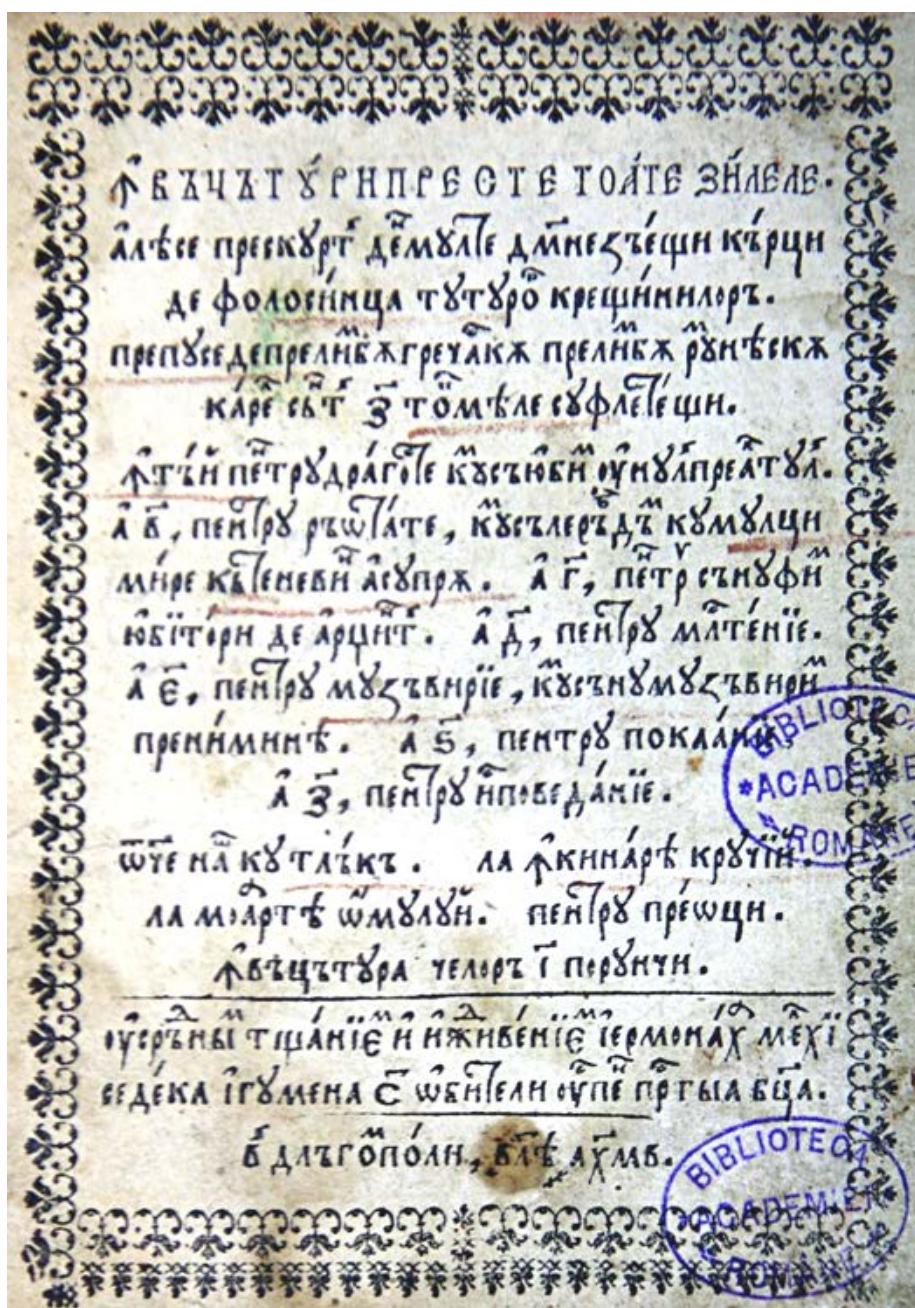 Ꙟвъцътꙋ́рнпресте тоа́те зи́леле.
а҆лѣсе прескꙋрт де́мꙋлте дм҃незъещи кърци
де фолоси́нца тꙋтꙋро крещи́нилоръ.
препꙋседепрелимбѫгрѣчаскѫ прелимбѫ рꙋмѣнѣскѫ
ка́ре сънт з҃ то́мѣле сꙋфлете́щи.
Ꙟтъй пентрꙋдра́госте кꙋмсъюбим оу҆нꙋлпреалтꙋл.
а҆ в҃, пентрꙋ ръѡта́те, кꙋмсълеръбдъм кꙋмꙋлци
ми́ре къ́теневин а҆сꙋпрѫ. а҆ г҃, пентрꙋ сънꙋфим
юбїто́ри де арџинт. а҆ д҃, пентрꙋ млте́нїе.
а҆ є҃, пентрꙋ мꙋзъви́рїе, кꙋмсънꙋмꙋзъвирим
прени́минѣ. а҆ ѕ҃, пентрꙋ покаа́нїе.
а҆ з҃, пентрꙋ и҆споведа́нїе.
ѿче наш кꙋ тлъкъ. ла ꙟкина́рѣ крꙋчїй.
ла моартѣ ѡмꙋлꙋй. пентрꙋ пре́ѡци.
ꙟвъцътꙋра челоръ ї҃ порꙋнчи.
оу҆срънны́м тща́нїєм и҆ и҆ждиве́нїєм і҆ермона́х мелхї
седе́ка і҆гꙋмена с҃ ѡби́тели оу҆спе́н пр҃тыа бц҃а.
в длъгопо́ли, влѣ́ ахмв.
BIBLIOTECA
*ACADEMIEI
ROMÂNE
BIBLIOTECA
*ACADEMIEI
ROMÂNE